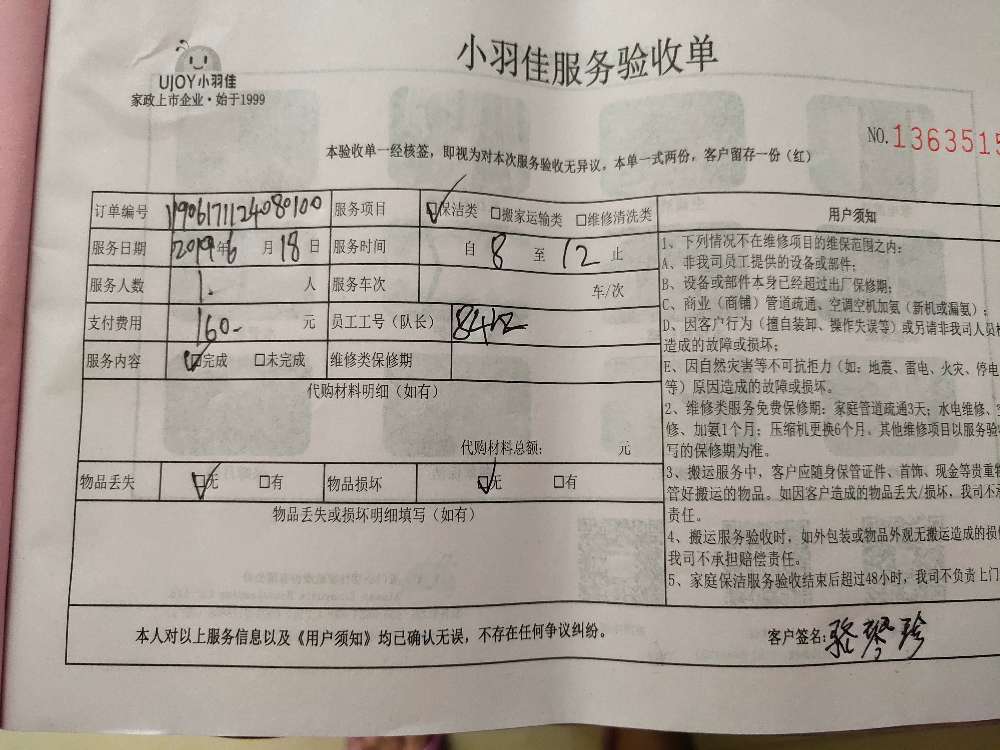 UJOY小羽佳
家政上市企业·始于1999
小羽佳服务验收单
NO.1363515
本验收单一经核签，即视为对本次服务验收无异议。本单一式两份，客户留存一份（红）
订单编号 190617112408 0100 服务项目 □保洁类 □搬家运输类 □维修清洗类
服务日期 2019年6月18日 服务时间 自 8 至 12 止
服务人数 1. 人 服务车次 车/次
支付费用 160- 元 员工工号（队长）
服务内容 □完成 □未完成 维修类保修期
代购材料明细（如有）
代购材料总额： 元
物品丢失 □无 □有 物品损坏 □无 □有
物品丢失或损坏明细填写（如有）
用户须知
1、下列情况不在维修项目的维保范围之内：
A、非我司员工提供的设备或部件；
B、设备或部件本身已经超过出厂保修期；
C、商业（商铺）管道疏通、空调空机加氨（新机或漏氨）；
D、因客户行为（擅自装卸、操作失误等）或另请非我司人员
造成的故障或损坏；
E、因自然灾害等不可抗拒力（如：地震、雷电、火灾、停电
等）原因造成的故障或损坏。
2、维修类服务免费保修期：家庭管道疏通3天；水电维修、
修、加氨1个月；压缩机更换6个月。其他维修项目以服务验
写的保修期为准。
3、搬运服务中，客户应随身保管证件、首饰、现金等贵重
管好搬运的物品。如因客户造成的物品丢失/损坏，我司不
责任。
4、搬运服务验收时，如外包装或物品外观无搬运造成的损
我司不承担赔偿责任。
5、家庭保洁服务验收结束后超过48小时，我司不负责上门
本人对以上服务信息以及《用户须知》均已确认无误，不存在任何争议纠纷。
客户签名：骆琴珍